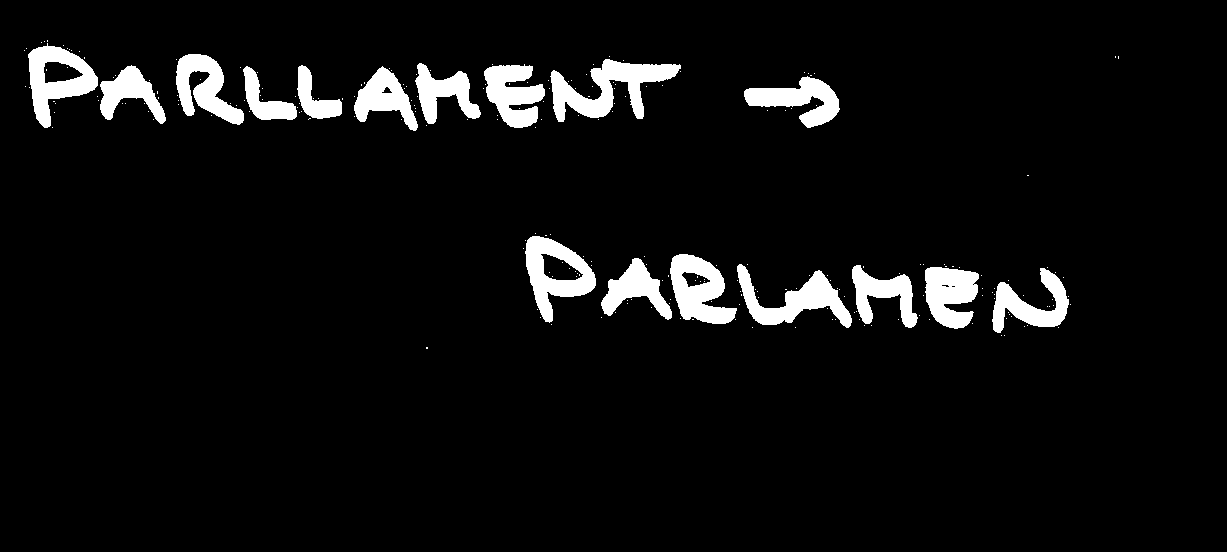 PARLLAMENT →
PARLAMEN